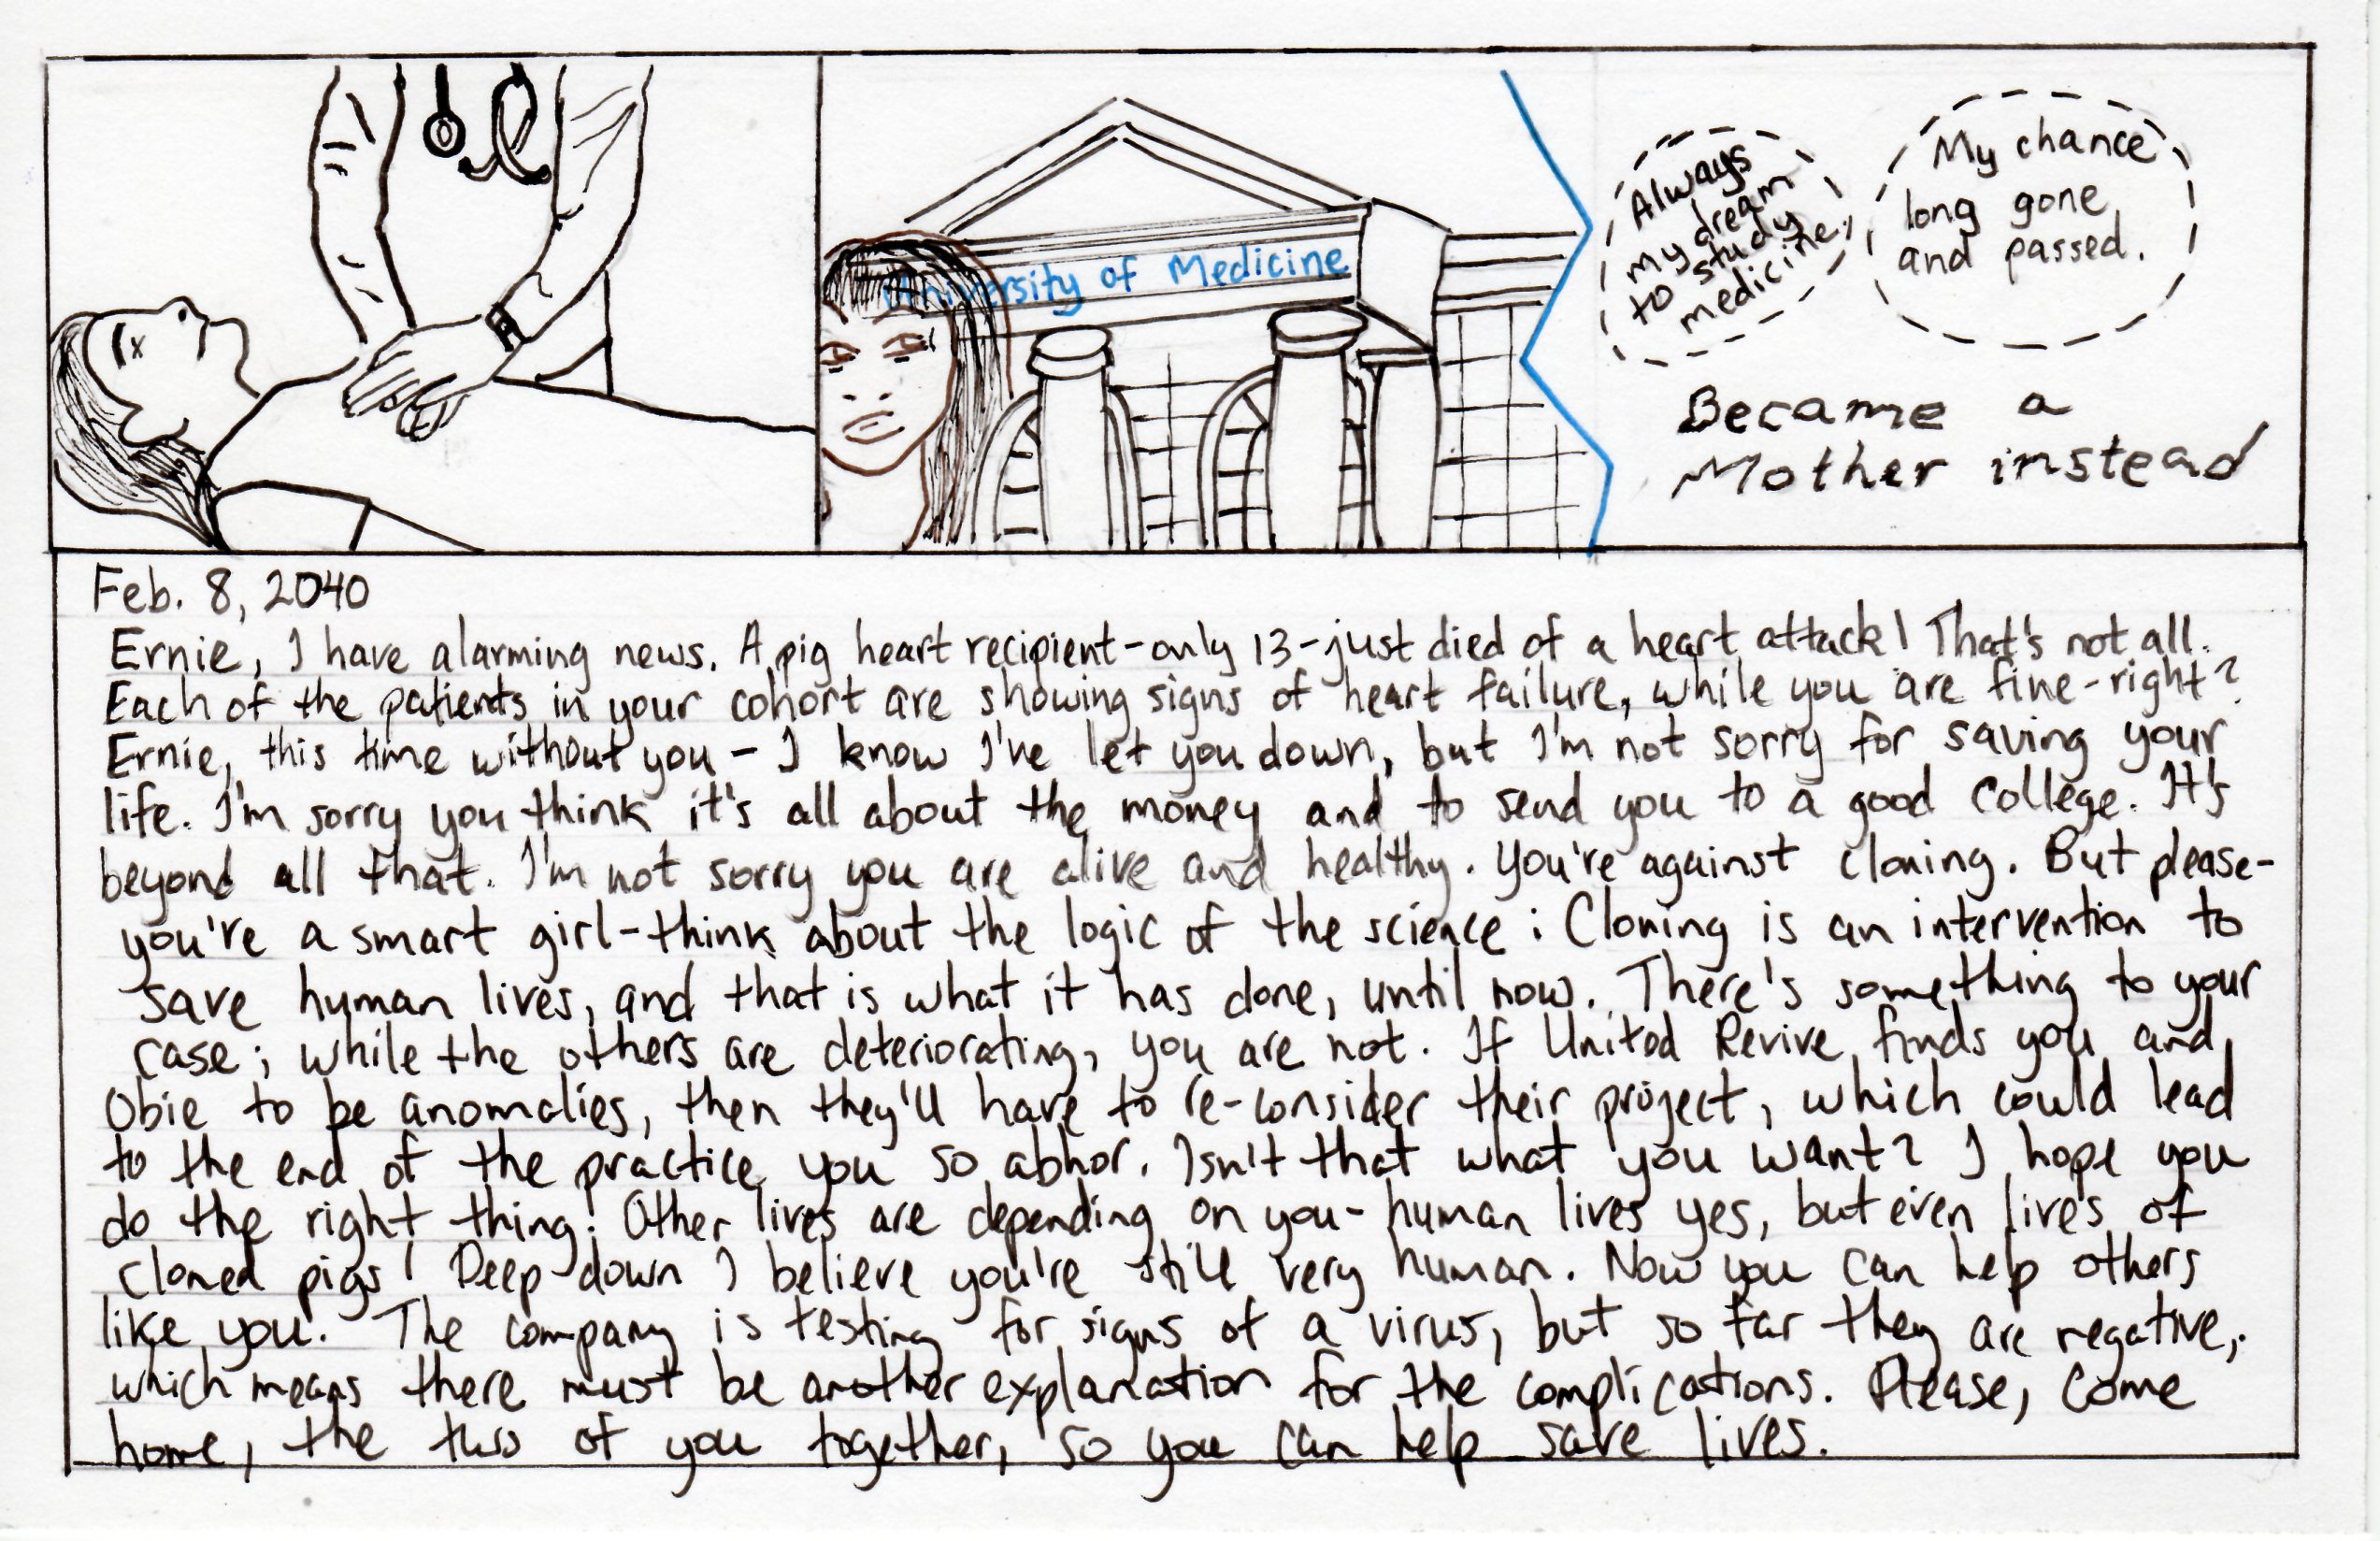 University of Medicine
Always
my dream
to study
medicine.
My chance
long gone
and passed.
Became a
Mother instead
Feb. 8, 2040
Ernie, I have alarming news. A pig heart recipient-only 13-just died of a heart attack! That's not all.
Each of the patients in your cohort are showing signs of heart failure, while you are fine-right?
Ernie, this time without you - I know I've let you down, but I'm not sorry for saving your
life. I'm sorry you think it's all about the money and to send you to a good college. It's
beyond all that. I'm not sorry you are alive and healthy. You're against cloning. But please-
you're a smart girl-think about the logic of the science: Cloning is an intervention to
save human lives, and that is what it has done, until now. There's something to your
case; while the others are deteriorating, you are not. If United Revive finds you and
Obie to be anomalies, then they'll have to re-consider their project, which could lead
to the end of the practice you so abhor. Isn't that what you want? I hope you
do the right thing! Other lives are depending on you- human lives yes, but even lives of
cloned pigs! Deep down I believe you're still very human. Now you can help others
like you. The company is testing for signs of a virus, but so far they are negative,
which means there must be another explanation for the complications. Please, come
home, the two of you together, so you can help save lives.